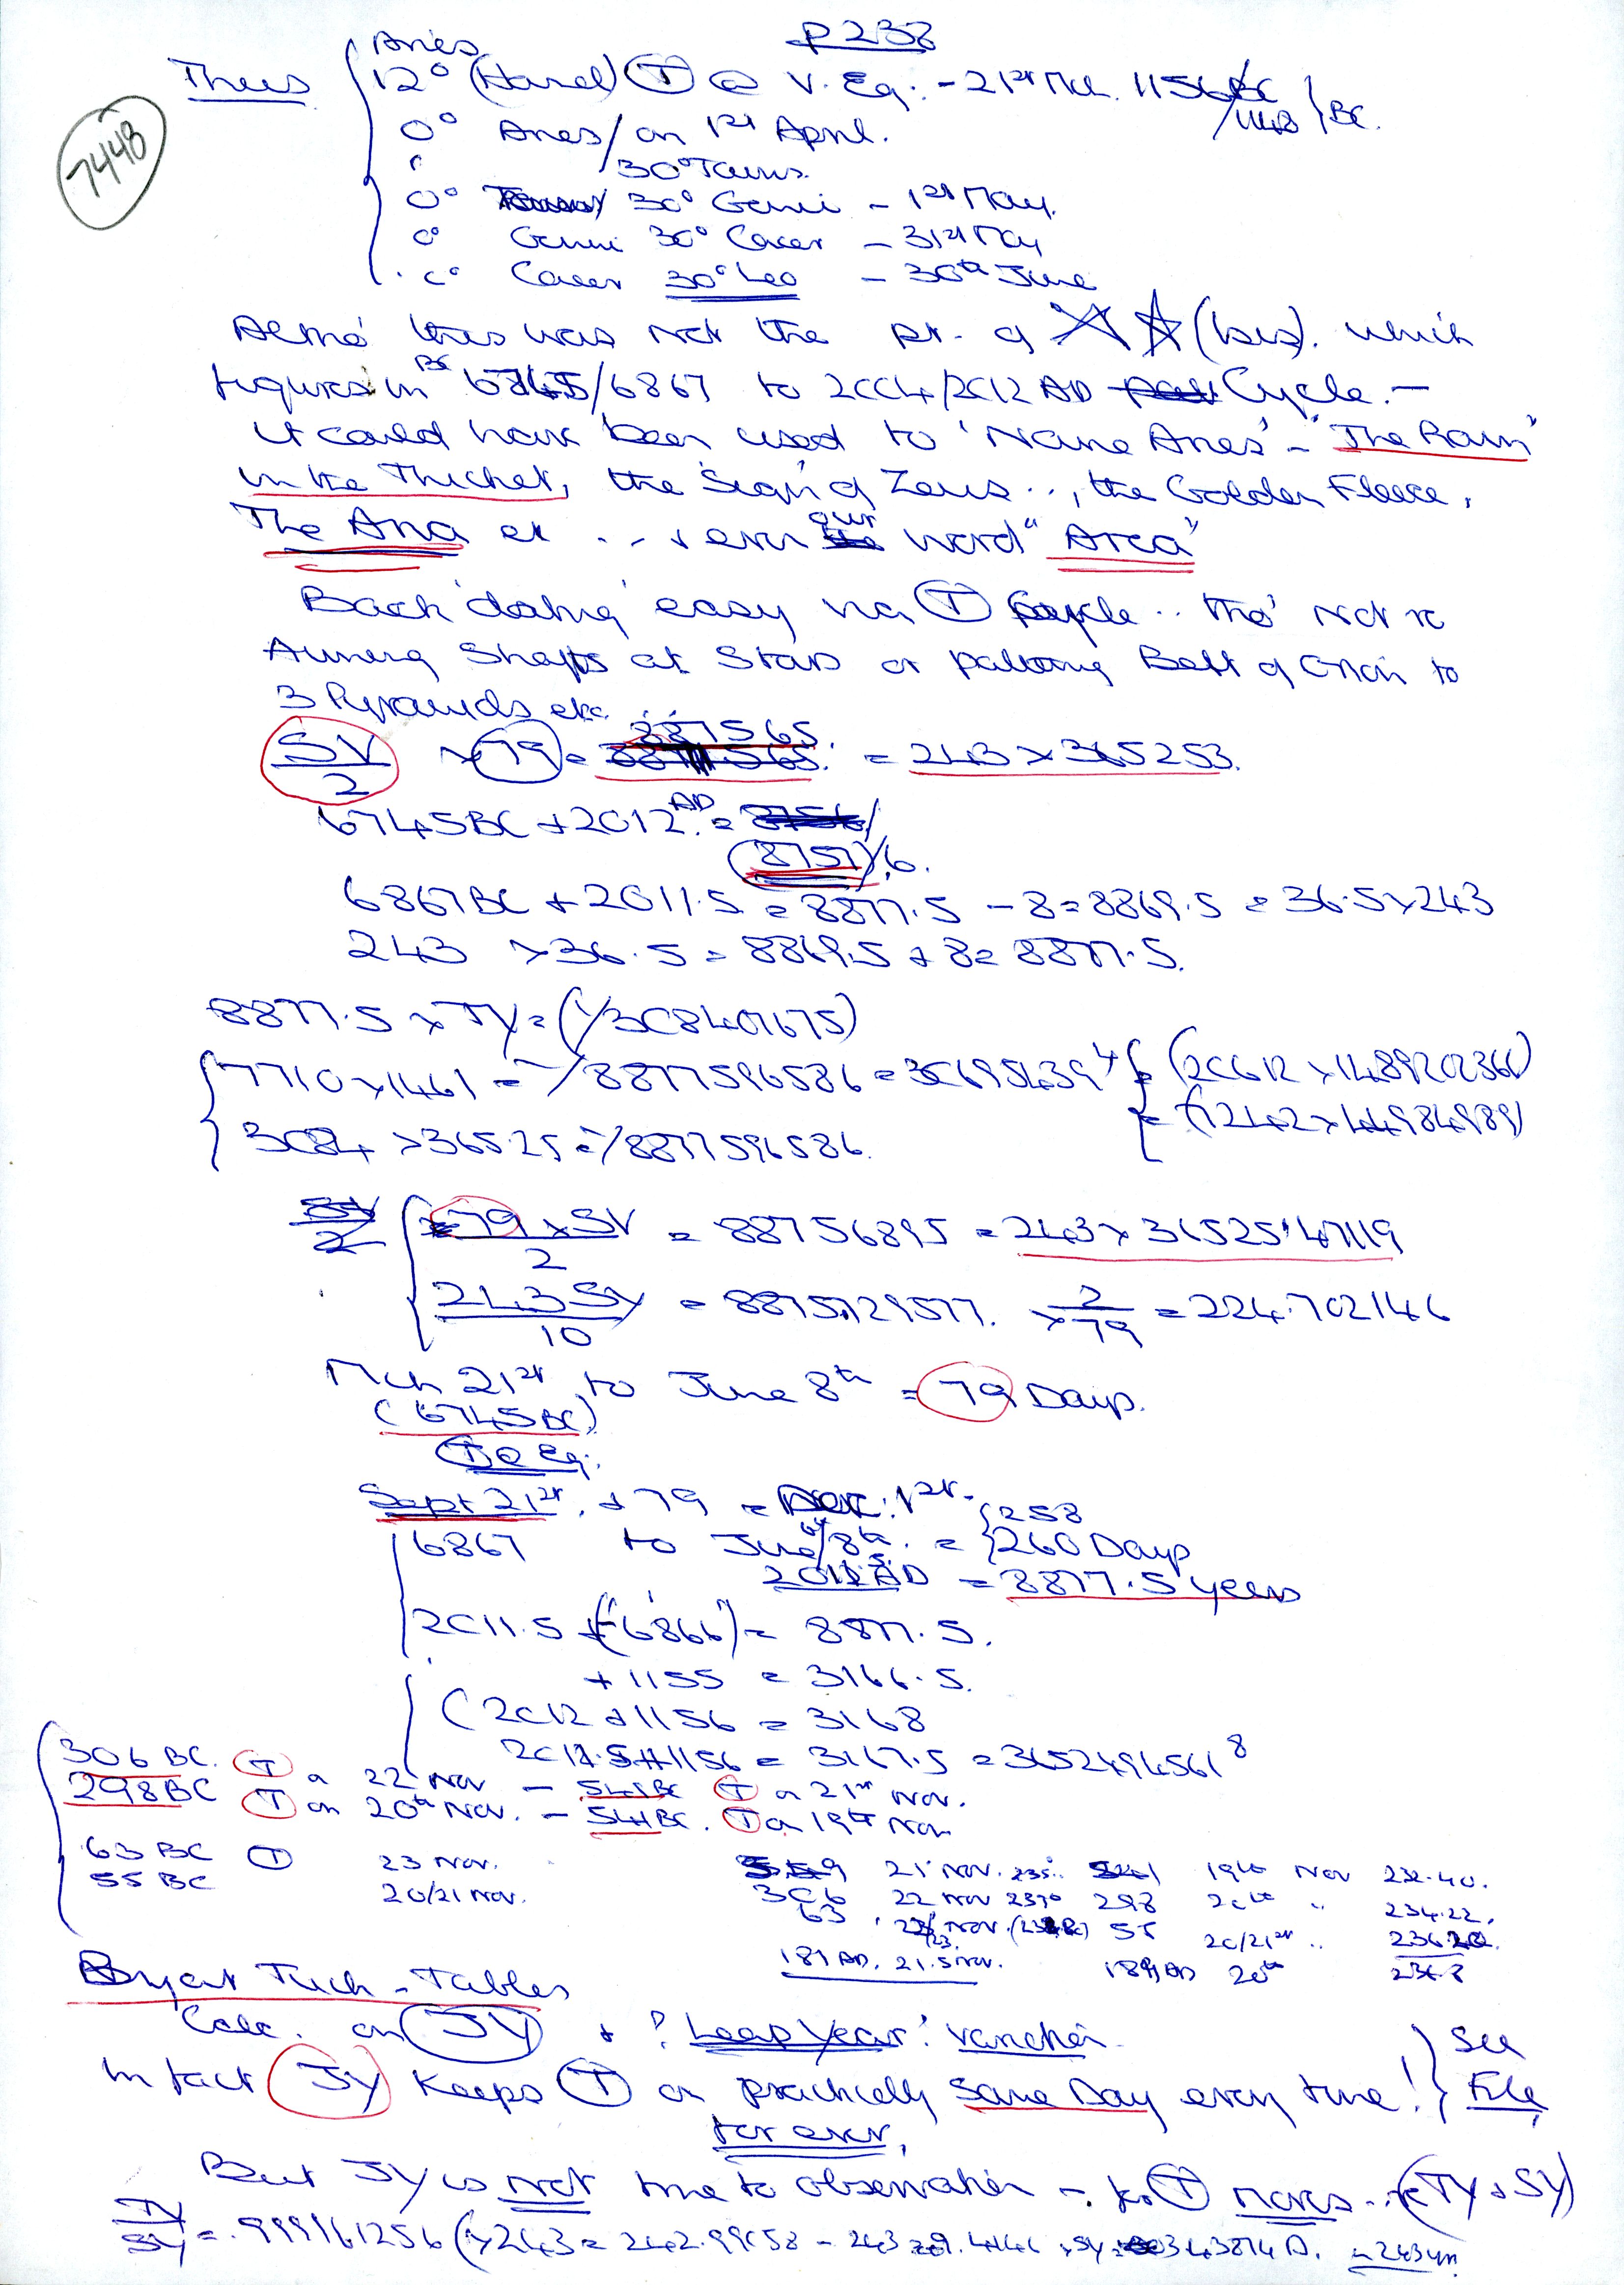 P238
7448
Aries
Thus 12° (Hamel) T @ V. Eq. - 21st Mch. 1156 BC
/1148 BC.
0° Aries / on 1st April.
/ 30° Taurus.
0° 30° Gemi - 1st May.
0° Gemi 30° Cacer - 31st May
0° Cacer 30° Leo - 30th June
Altho' this was not the pt. of (bis). which
figures in BC 6745/6867 to 2004/2012 AD Cycle. -
it could have been used to 'Name Aries' - "The Ram
in the Thicket, the Sign of Zeus .., the Golden Fleece,
The Aria etc ... & even our word "Area"
Back 'dating' easy via T cycle .. tho' not re
Aiming Shafts at Stars or pattering Belt of Orion to
3 Pyramids etc.
SV/2 x 79 = 887565. = 243 x 365253.
6745BC + 2012 AD. =
8757/6.
6867BC + 2011.5 = 8877.5 - 8 = 8869.5 = 36.5 x 243
243 x 36.5 = 8869.5 + 8 = 8877.5.
8877.5 x TY = (√308407675)
7710 x 1461 = √8877596586 = 30695439⁴ = (20612 x 148920236)
= (1242 x 44984989)
3084 x 365.25 = √8877596586.
79 x SV / 2 = 88756895 = 243 x 36525.47119
243 SY / 10 = 8875.729577. x 2/79 = 224.702146
Mch 21st to June 8th = 79 Days.
(6745BC)
T @ Eq.
Sept 21st. + 79 = Dec. 1st.
258
6867 to June 6/8th. = 260 Days
2011.5 AD = 8877.5 years
2011.5 + ("6866") = 8877.5.
+ 1155 = 3166.5.
(2012 + 1156 = 3168
2011.5 + 1156 = 3167.5 = 3652494561⁸
306 BC. T on 22 Nov - 549 BC T on 21st Nov.
298 BC T on 20th Nov. - 541 BC. T on 19th Nov
63 BC T 23 Nov.
55 BC 20/21 Nov.
549 21 Nov. 235. 541 19th Nov 232.40.
306 22 Nov 237° 298 20th " 234.22.
63 . 22/23 Nov. 55 20/21st " 236.20.
189 AD. 21.5 Nov. 189 AD 20th 234.8
Bryant Tuck - Tables
Calc. on JY + ? Leap Year? variation.
In fact JY keeps T on practically same Day every time! See
File
for ever.
But JY is not true to observation - for T moves .. (TY & SY)
TY/SY = .999961256 (x 243 = 242.99058 - 243 = 9.4146 x SY = 343874 D. = 243 yrs